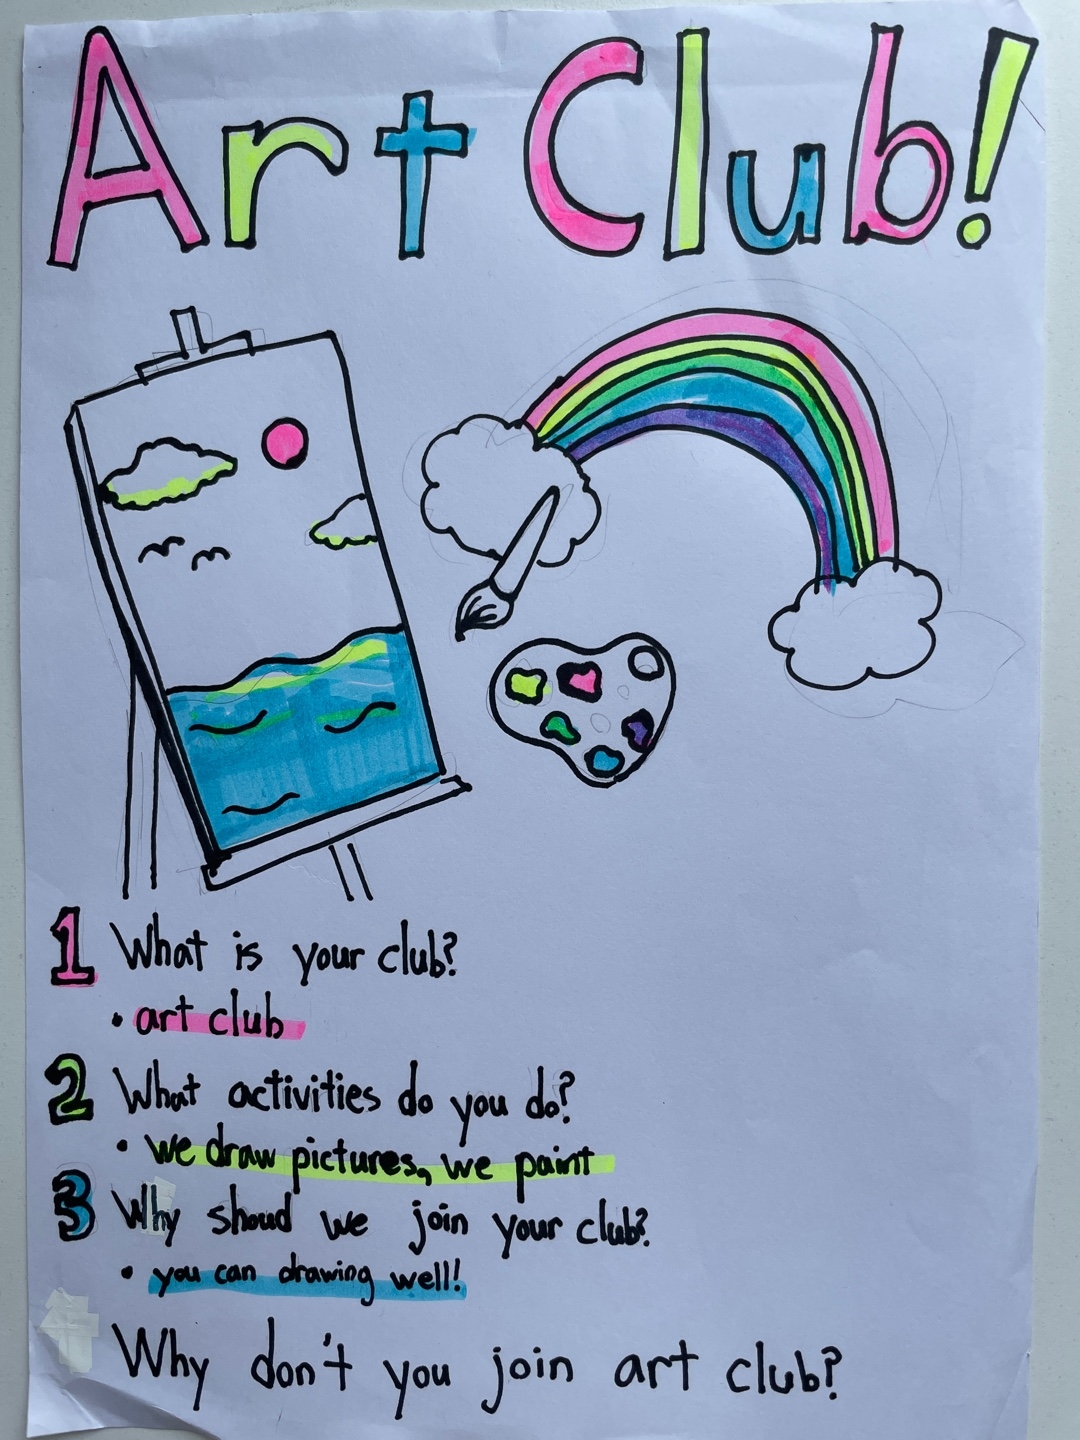 Art Club!
1 What is your club?
• art club
2 What activities do you do?
• we draw pictures, we paint
3 Why shoud we join your club?
• you can drawing well!
Why don't you join art club?